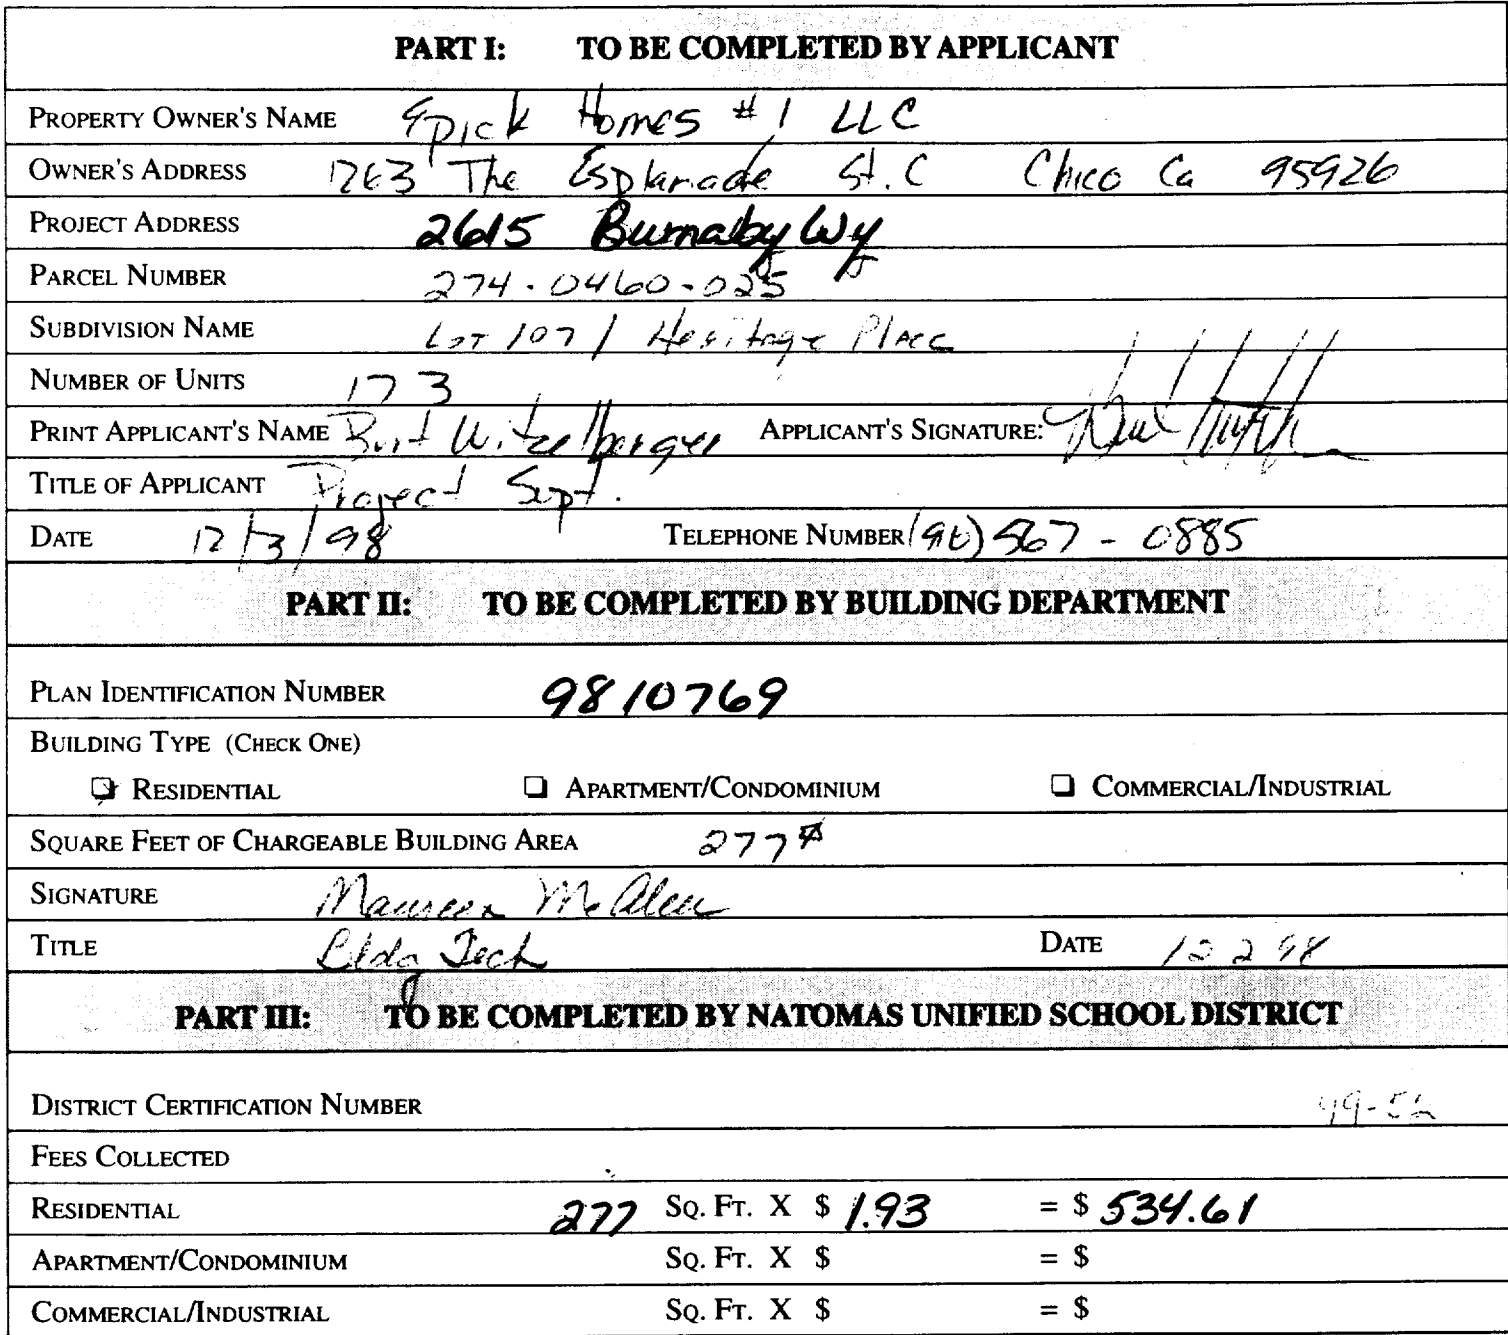 PART I: TO BE COMPLETED BY APPLICANT
PROPERTY OWNER'S NAME Epick Homes #1 LLC
OWNER'S ADDRESS 1263 The Esplanade St. C Chico Ca 95926
PROJECT ADDRESS 2615 Burnaby Wy
PARCEL NUMBER 274-0460-025
SUBDIVISION NAME LOT 107 / Heritage Place
NUMBER OF UNITS 173
PRINT APPLICANT'S NAME Burt Witzelberger APPLICANT'S SIGNATURE:
TITLE OF APPLICANT Project Supt.
DATE 12/3/98 TELEPHONE NUMBER (916) 567-0885
PART II: TO BE COMPLETED BY BUILDING DEPARTMENT
PLAN IDENTIFICATION NUMBER 9810769
BUILDING TYPE (CHECK ONE)
RESIDENTIAL APARTMENT/CONDOMINIUM COMMERCIAL/INDUSTRIAL
SQUARE FEET OF CHARGEABLE BUILDING AREA 277
SIGNATURE Maureen
TITLE Bldg Tech DATE 12 2 98
PART III: TO BE COMPLETED BY NATOMAS UNIFIED SCHOOL DISTRICT
DISTRICT CERTIFICATION NUMBER
FEES COLLECTED
RESIDENTIAL 277 SQ. FT. X $ 1.93 = $ 534.61
APARTMENT/CONDOMINIUM SQ. FT. X $ = $
COMMERCIAL/INDUSTRIAL SQ. FT. X $ = $